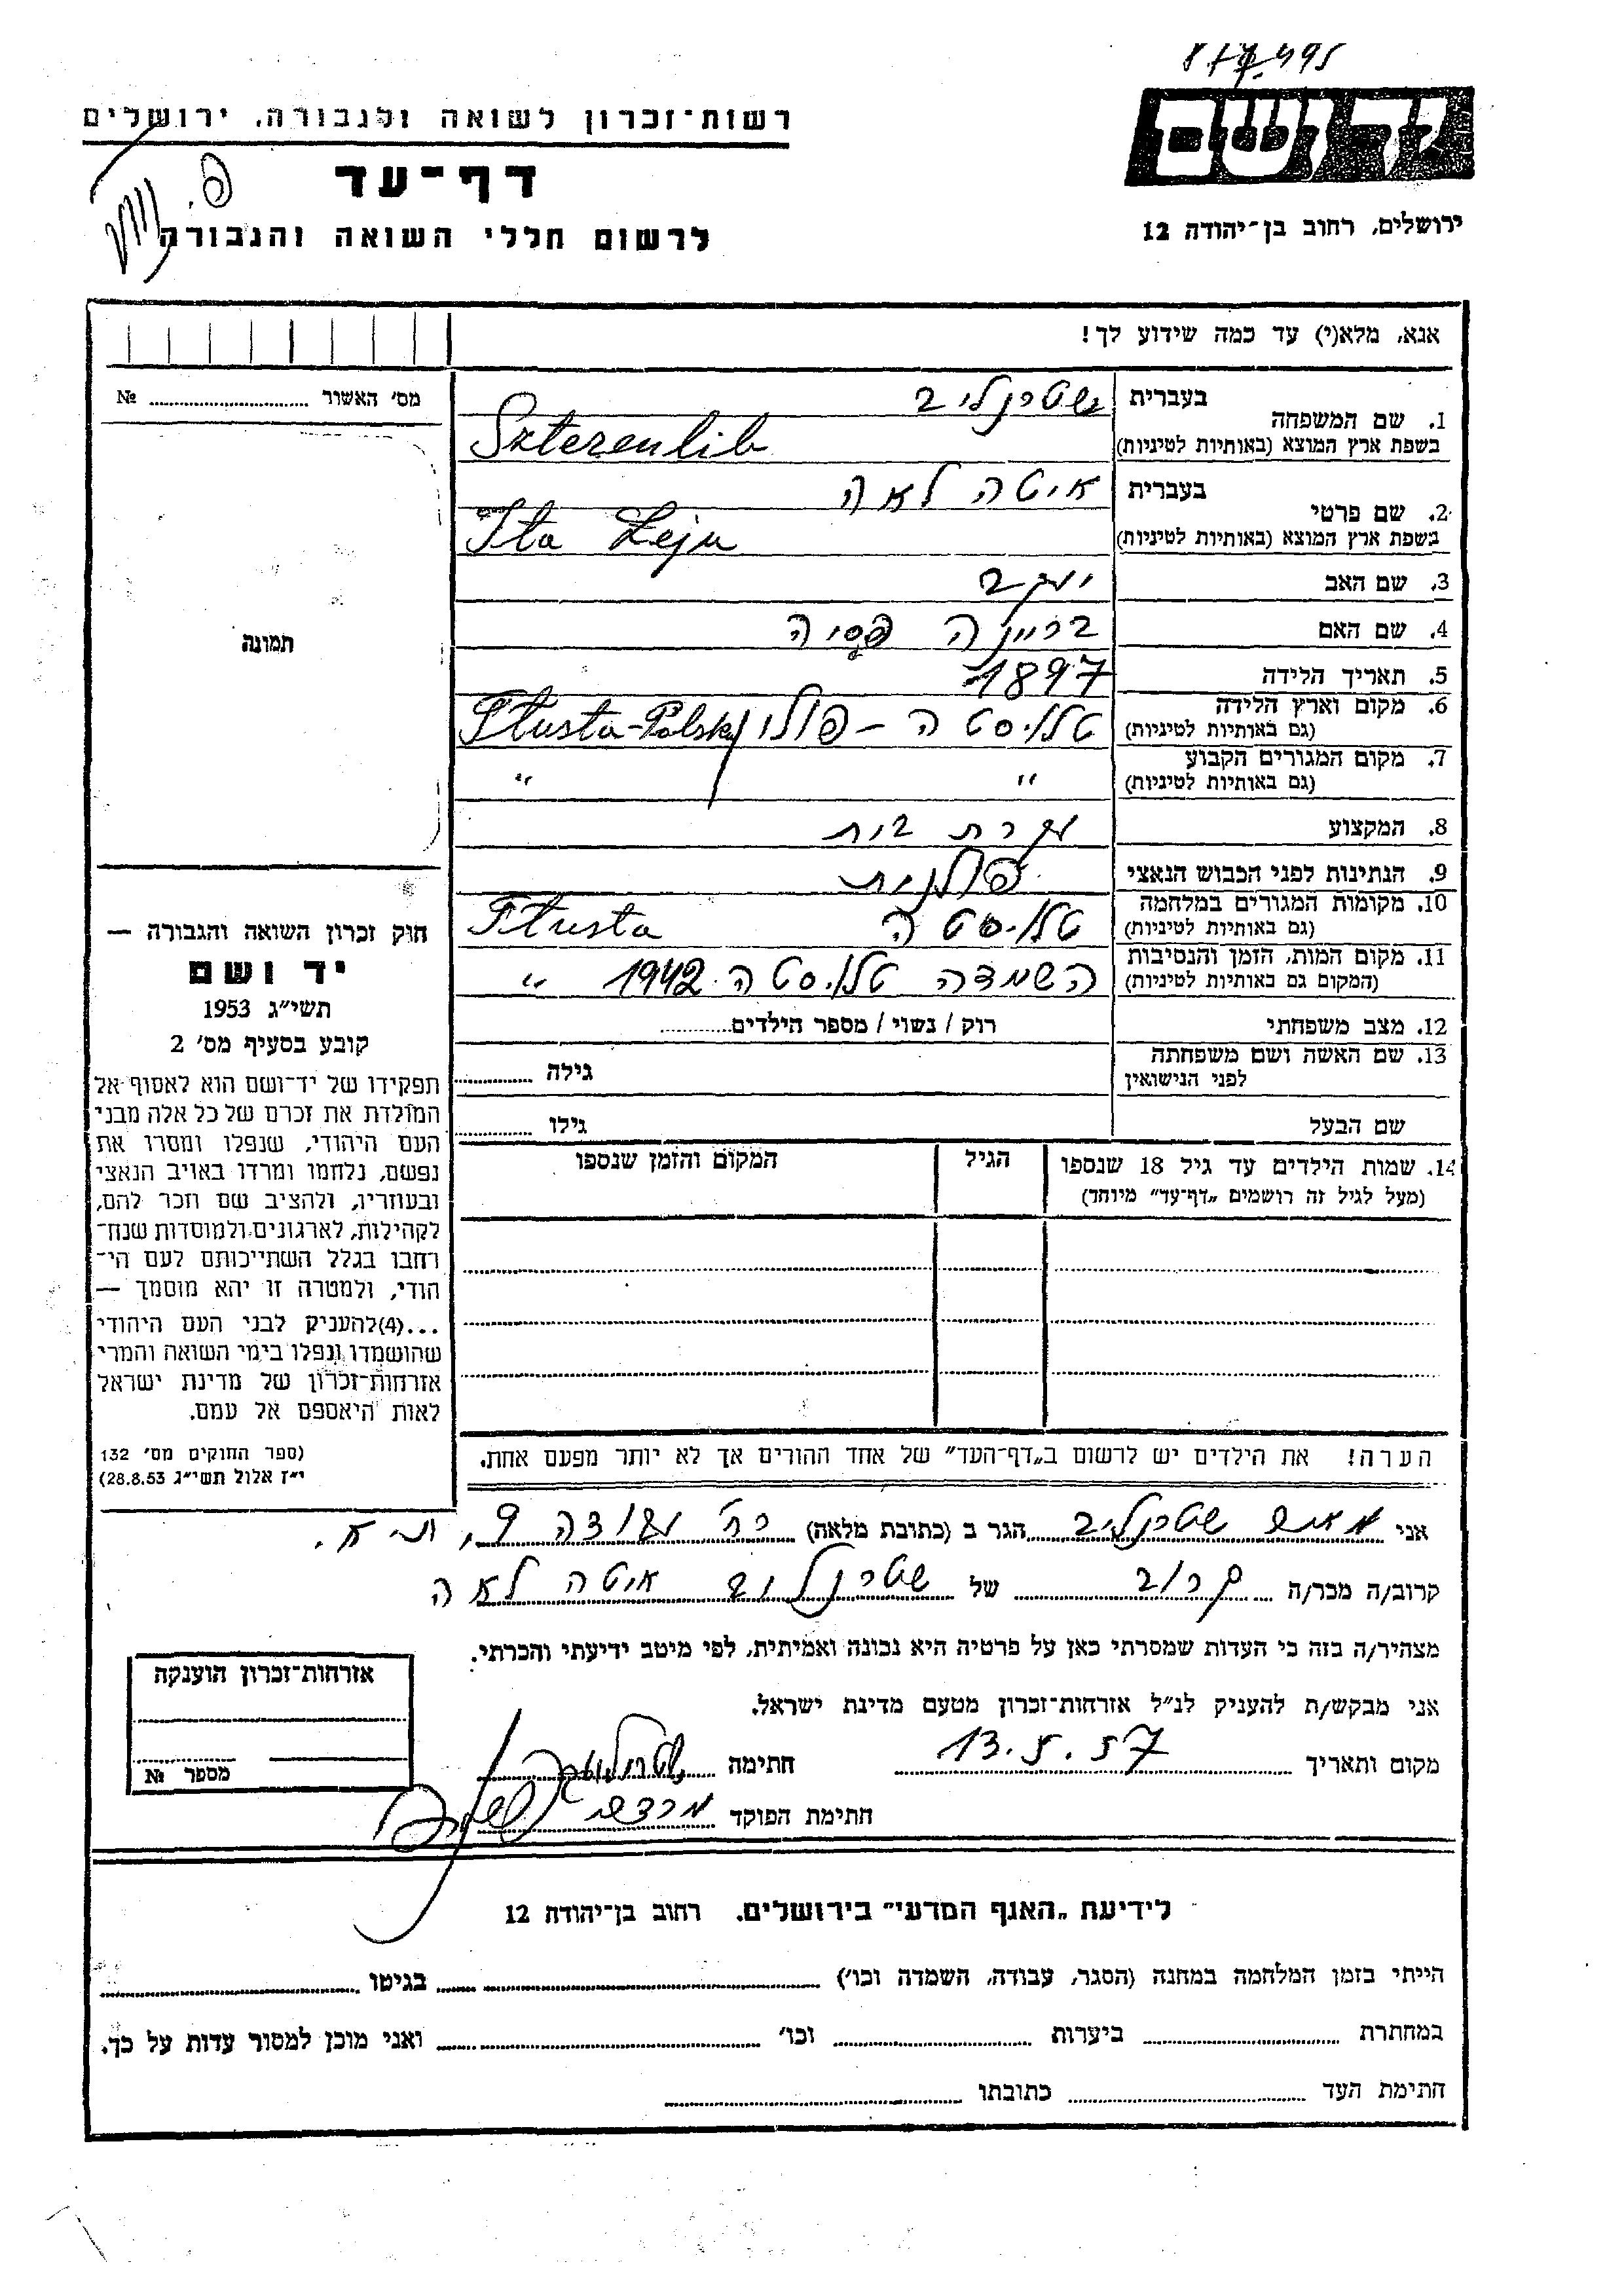 יד ושם
רשות־זכרון לשואה ולגבורה, ירושלים
דף־עד
לרשום חללי השואה והגבורה
ירושלים, רחוב בן־יהודה 12
אנא, מלא(י) עד כמה שידוע לך!
מס' האשור №
תמונה
1. שם המשפחה
בעברית שטרנליב
בשפת ארץ המוצא (באותיות לטיניות) Szterenlib
2. שם פרטי
בעברית איטה לאה
בשפת ארץ המוצא (באותיות לטיניות) Ita Leja
3. שם האב יעקב
4. שם האם בריינלה פסיה
5. תאריך הלידה 1897
6. מקום וארץ הלידה טלוסטה – פולין Tłusta-Polska
(גם באותיות לטיניות)
7. מקום המגורים הקבוע " "
(גם באותיות לטיניות)
8. המקצוע עקרת בית
9. הנתינות לפני הכבוש הנאצי פולנית
10. מקומות המגורים במלחמה טלוסטה Tłusta
(גם באותיות לטיניות)
11. מקום המות, הזמן והנסיבות השמדה טלוסטה 1942 "
(המקום גם באותיות לטיניות)
12. מצב משפחתי רוק / נשוי / מספר הילדים
13. שם האשה ושם משפחתה גילה
לפני הנישואין
שם הבעל גילו
14. שמות הילדים עד גיל 18 שנספו הגיל המקום והזמן שנספו
(מעל לגיל זה רושמים „דף־עד" מיוחד)
הערה! את הילדים יש לרשום ב„דף־העד" של אחד ההורים אך לא יותר מפעם אחת.
חוק זכרון השואה והגבורה —
יד ושם
תשי"ג 1953
קובע בסעיף מס' 2
תפקידו של יד־ושם הוא לאסוף אל
המולדת את זכרם של כל אלה מבני
העם היהודי, שנפלו ומסרו את
נפשם, נלחמו ומרדו באויב הנאצי
ובעוזריו, ולהציב שם וזכר להם,
לקהילות, לארגונים ולמוסדות שנח־
רחבו בגלל השתייכותם לעם הי־
הודי, ולמטרה זו יהא מוסמך —
...(4)להעניק לבני העם היהודי
שהושמדו ונפלו בימי השואה והמרי
אזרחות־זכרון של מדינת ישראל
לאות היאספם אל עמם.
(ספר החוקים מס' 132
י"ז אלול תשי"ג 28.8.53)
אני שטרנליב הגר ב (כתובת מלאה) רח' 9, ת־א.
קרוב/ה מכר/ה קרוב של שטרנליב איטה לאה
מצהיר/ה בזה כי העדות שמסרתי כאן על פרטיה היא נכונה ואמיתית, לפי מיטב ידיעתי והכרתי.
אני מבקש/ת להעניק לנ"ל אזרחות־זכרון מטעם מדינת ישראל.
מקום ותאריך 13.5.57 חתימה שטרנליב
חתימת הפוקד
אזרחות־זכרון הוענקה
מספר №
לידיעת „האגף המדעי" בירושלים, רחוב בן־יהודה 12
הייתי בזמן המלחמה במחנה (הסגר, עבודה, השמדה וכו') בגיטו
במחתרת ביערות וכו' ואני מוכן למסור עדות על כך.
חתימת העד כתובתו